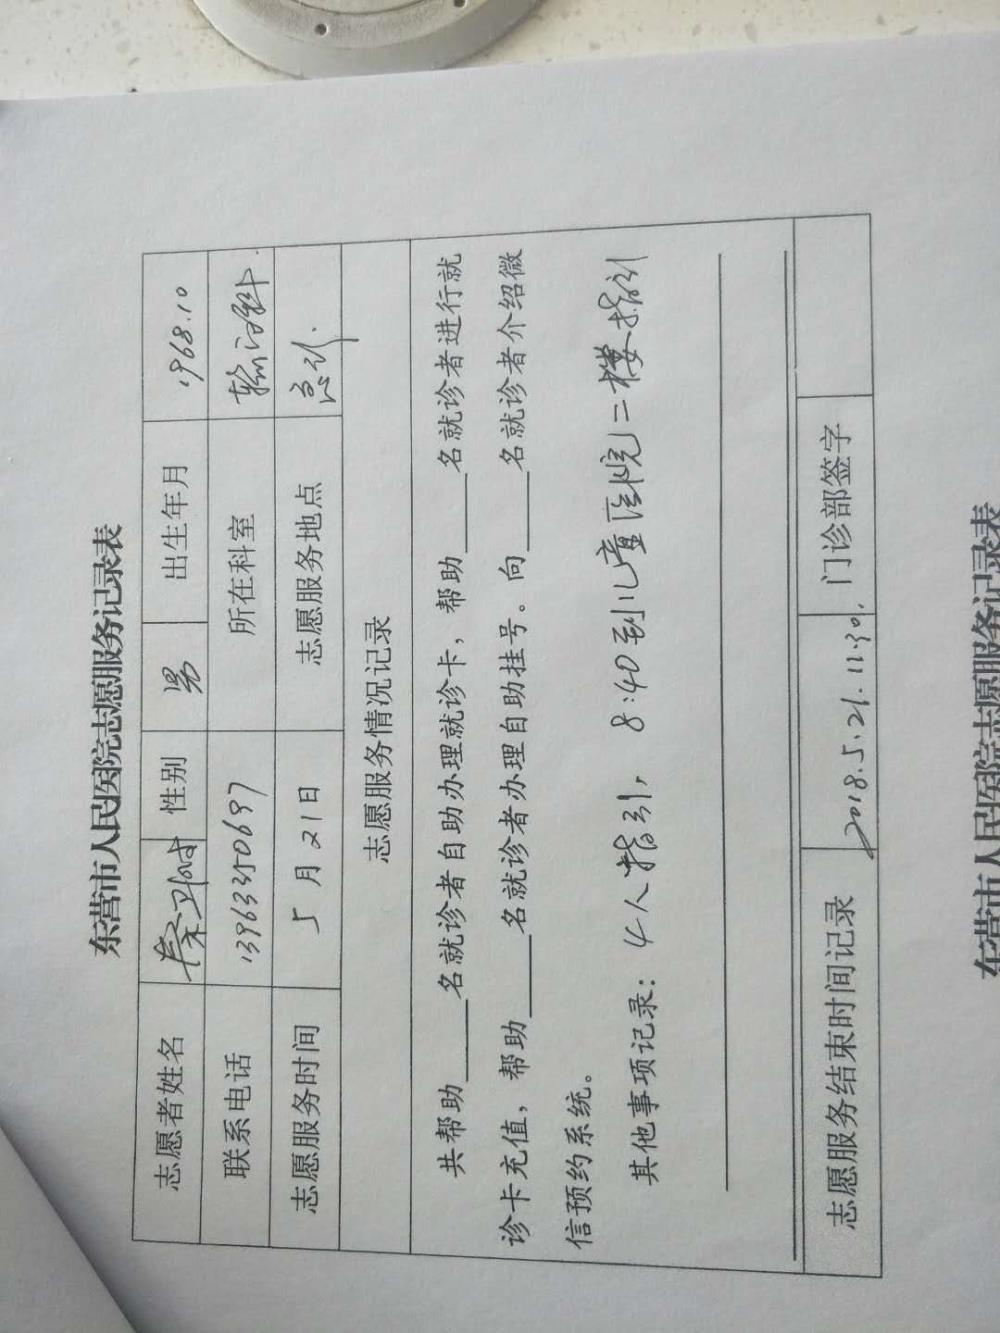 东营市人民医院志愿服务记录表
志愿者姓名 性别 男 出生年月 1968.10
联系电话 13963350697 所在科室 输血科
志愿服务时间 5月21日 志愿服务地点 急诊.
志愿服务情况记录
共帮助____名就诊者自助办理就诊卡，帮助____名就诊者进行就
诊卡充值，帮助____名就诊者办理自助挂号。向____名就诊者介绍微
信预约系统。
其他事项记录：4人指引，8:40到儿童医院二楼指引
志愿服务结束时间记录 2018.5.21.11:30 门诊部签字
东营市人民医院志愿服务记录表